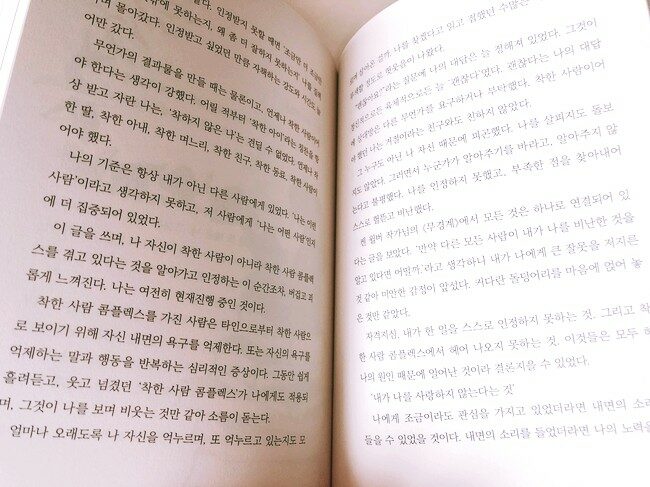 인정받지 못할 때면 '조금만 더 조금만
못하는지, 왜 좀 더 잘하지 못하는지' 나를
며 몰아갔다. 인정받고 싶었던 만큼 자책하는 강도와 시간도
어만 갔다.
무언가의 결과물을 만들 때는 물론이고, 언제나 착한 사람이어
야 한다는 생각이 강했다. 어릴 적부터 '착한 아이'라는 칭찬을 항
상 받고 자란 나는, '착하지 않은 나'는 견딜 수 없었다. 언제나 착
한 딸, 착한 아내, 착한 며느리, 착한 친구, 착한 동료, 착한 사람이
어야 했다.
나의 기준은 항상 내가 아닌 다른 사람에게 있었다. '나는 어떤
사람'이라고 생각하지 못하고, 저 사람에게 '나는 어떤 사람'인지
에 더 집중되어 있었다.
이 글을 쓰며, 나 자신이 착한 사람이 아니라 착한 사람 콤플렉
스를 겪고 있다는 것을 알아가고 인정하는 이 순간조차, 버겁고 괴
롭게 느껴진다. 나는 여전히 현재진행 중인 것이다.
착한 사람 콤플렉스를 가진 사람은 타인으로부터 착한 사람으
로 보이기 위해 자신 내면의 욕구를 억제한다. 또는 자신의 욕구를
억제하는 말과 행동을 반복하는 심리적인 증상이다. 그동안 쉽게
흘려듣고, 웃고 넘겼던 '착한 사람 콤플렉스'가 나에게도 적용되
며, 그것이 나를 보며 비웃는 것만 같아 소름이 돋는다.
얼마나 오래도록 나 자신을 억누르며, 또 억누르고 있는지도 모
살아온 걸까. 나를 찾겠다고 읽고 썼었던 수많은
정도로 헛웃음이 나왔다.
"괜찮아요?"라는 질문에 나의 대답은 늘 정해져 있었다. 그것이
정신적으로든 육체적으로든 늘 '괜찮다'였다. 괜찮다는 나의 대답
에 상대방은 다른 무언가를 요구하거나 부탁했다. 착한 사람이어
야 했던 나는 거절이라는 친구와도 친하지 않았다.
그 누구도 아닌 나 자신 때문에 피곤했다. 나를 살피지도 돌보
지도 않았다. 그러면서 누군가가 알아주기를 바라고, 알아주지 않
는다고 불평했다. 나를 인정하지 못했고, 부족한 점을 찾아내어
스스로 헐뜯고 비난했다.
켄 윌버 작가님의 《무경계》에서 모든 것은 하나로 연결되어 있
다는 글을 보았다. '만약 다른 모든 사람이 내가 나를 비난한 것을
알고 있다면 어떨까.'라고 생각하니 내가 나에게 큰 잘못을 저지른
것 같아 미안한 감정이 앞섰다. 커다란 돌덩어리를 마음에 얹어 놓
은 것만 같았다.
자격지심, 내가 한 일을 스스로 인정하지 못하는 것. 그리고 착
한 사람 콤플렉스에서 헤어 나오지 못하는 것. 이것들은 모두 하
나의 원인 때문에 일어난 것이라 결론지을 수 있었다.
'내가 나를 사랑하지 않는다는 것'
나에게 조금이라도 관심을 가지고 있었더라면 내면의 소리
들을 수 있었을 것이다. 내면의 소리를 들었더라면 나의 노력을